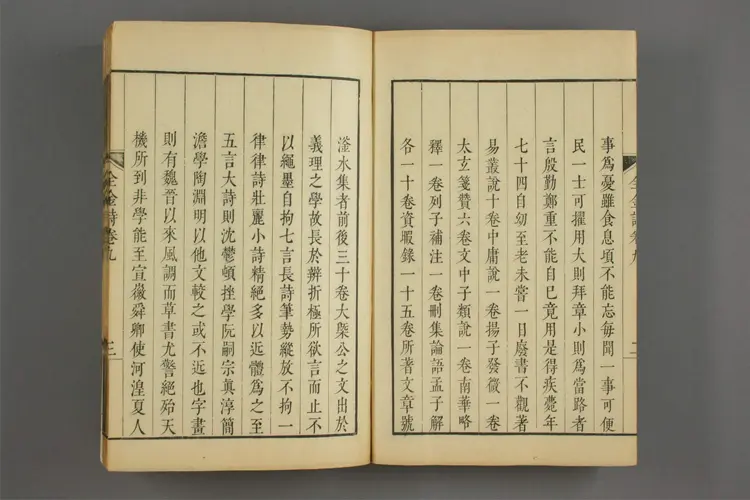 事爲憂雖食息頃不能忘每聞一事可便
民一士可擢用大則拜章小則爲當路者
言殷勤鄭重不能自已竟用是得疾薨年
七十四自幼至老未嘗一日廢書不觀著
易叢說十卷中庸說一卷揚子發微一卷
太玄箋贊六卷文中子類說一卷南華略
釋一卷列子補注一卷刪集論語孟子解
各一十卷資暇錄一十五卷所著文章號
滏水集者前後三十卷大槩公之文出於
義理之學故長於辨折極所欲言而止不
以繩墨自拘七言長詩筆勢縱放不拘一
律律詩壯麗小詩精絕多以近體爲之至
五言大詩則沈鬱頓挫學阮嗣宗眞淳簡
澹學陶淵明以他文較之或不近也字畫
則有魏晉以來風調而草書尤警絕殆天
機所到非學能至宣徽舜卿使河湟夏人
全金詩卷九
三